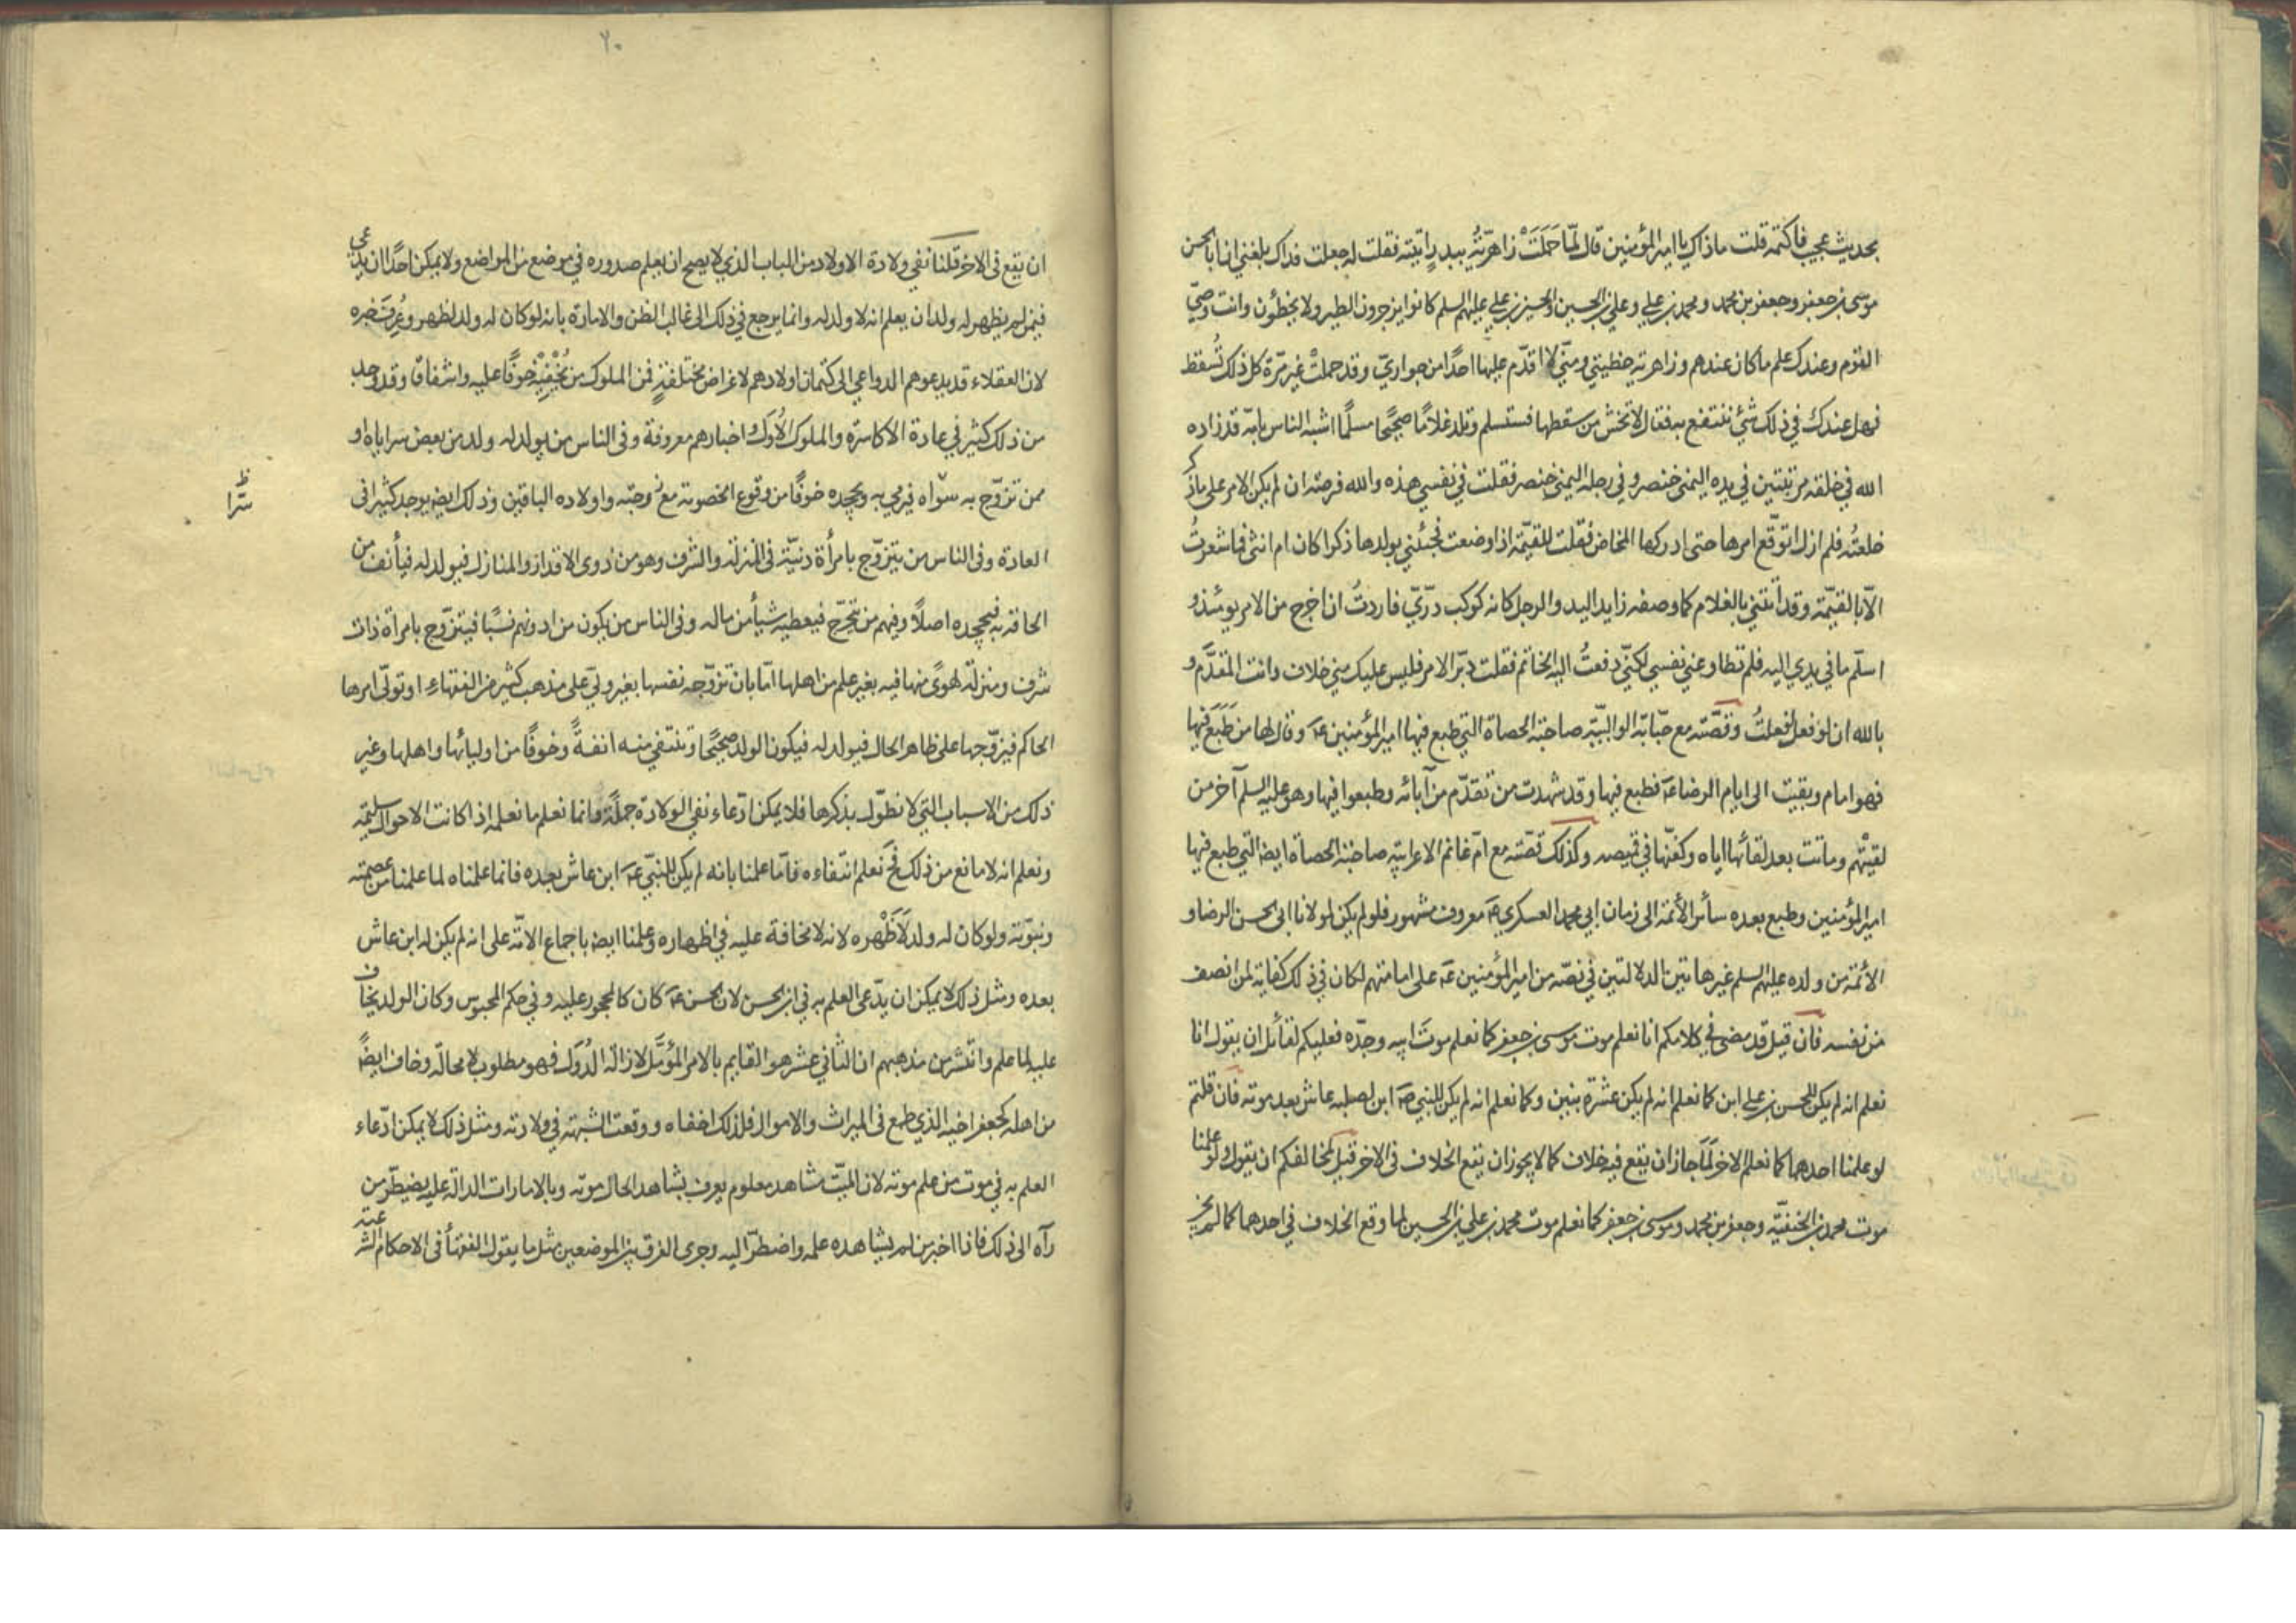 بحديث عجيب فاكتمه قلت ما ذاك يا امير المؤمنين قال لمّا حَمَلَتْ زاهريّتُه ببدر اتيته فقلت له جعلت فداك بلغني ان ابا الحسن
موسى بن جعفر وجعفر بن محمد ومحمد بن علي وعلي بن الحسين والحسين بن علي عليهم السلم كانوا يزجرون الطير ولا يخطئون وانت وصيّ
القوم وعندك علم ما كان عندهم وزاهريّه حظيتي ومن لا اقدّم عليها احدًا من جواريّ وقد حملتْ غير مرّة كل ذلك تُسقط
فهل عندك في ذلك شئ ننتفع به فقال لا تخش من سقطها فستسلم وتلد غلامًا صحيحًا مسلّمًا اشبه الناس بامّه قد زاده
الله في خلقه مزيّتين في يده اليمنى خنصر وفي رجله اليمنى خنصر فقلت في نفسي هذه والله فرصة ان لم يكن الامر على ما ذكر
خلعتُه فلم ازل اتوقّع امرها حتى ادركها المخاض فقلت للقيّمة اذا وضعت فجئني بولدها ذكرا كان ام انثى فما شعرتُ
الّا بالقيّمة وقد اتتني بالغلام كما وصفه زايد اليد والرجل كانه كوكب درّيّ فاردتُ ان اخرج من الامر يومئذ و
اسلّم ما في يدي اليه فلم تطاوعني نفسي لكنّي دفعتُ اليه الخاتم فقلت دبّر الامر فليس عليك مني خلاف وانت المقدَّم و
بالله ان لو فعل لفعلتُ وقصّته مع حبّابة الوالبيّة صاحبة الحصاة التي طبع فيها امير المؤمنين عَ وقال لها من طَبَعَ فيها
فهو امام وبقيت الى ايام الرضا عَ فطبع فيها وقد شهدت من تقدّم من آبائه وطبعوا فيها وهو عليه السلم آخر من
لقيتْهم وماتت بعد لقائها اياه وكفّنها في قميصه وكذلك قصّته مع امّ غانم الاعرابيّة صاحبة الحصاة ايضا التي طبع فيها
امير المؤمنين وطبع بعده سائر الأئمة الى زمان ابي محمد العسكري عَ معروف مشهور فلو لم يكن لمولانا ابى الحسن الرضا و
الائمة من ولده عليهم السلم غير هاتين الدلالتين في نصّه من امير المؤمنين عَ على امامتهم لكان في ذلك كفاية لمن انصف
من نفسه فان قيل قد مضى في كلامكم انا نعلم موت موسى بن جعفر كما نعلم موت ابيه وجدّه فعليكم لقائل ان يقول انا
نعلم انه لم يكن للحسن بن علي ابن كما نعلم انه لم يكن عشرة بنين وكما نعلم انه لم يكن للنبي صَ ابن لصلبه عاش بعد موته فان قلتم
لو علمنا احدهما كما نعلم الاخر لَمَا جاز ان يقع فيه خلاف كما لا يجوز ان يقع الخلاف في الاخر قيل لمخالفكم ان يقول ولو علمنا
موت محمد بن الحنفيّة وجعفر بن محمد وموسى بن جعفر كما نعلم موت محمد بن علي بن الحسين لما وقع الخلاف في احدهما كما لم يجز
٢٠
ان يقع فى الاخر قلنا نفي ولادة الاولاد من الباب الذي لا يصح ان يعلم صدوره في موضع من المواضع ولا يمكن احدًا ان يدّعى
فيمن لم يظهر له ولد ان يعلم انه لا ولد له وانما يرجع في ذلك الى غالب الظن والامارة بانه لو كان له ولد لظهر وعُرِفَ خبره
لان العقلاء قد يدعوهم الدواعي الى كتمان اولادهم لاغراض مختلفةٍ فمن الملوك من يُخْفِيْهِ خوفًا عليه واشفاقا وقد وجد
من ذلك كثير في عادة الاكاسرة والملوك الاُوَل واخبارهم معروفة وفى الناس من يولد له ولد من بعض سراياه او
ممن تزوّج به سرّا فيرمي به ويجحده خوفًا من وقوع الخصومة مع زوجته واولاده الباقين وذلك ايضا يوجد كثيرا فى
ظ سرّا
العادة وفى الناس من يتزوّج بامرأة دنيّة فى المنزلة والشرف وهو من ذوى الاقدار والمنازل فيولد له فيأنف من
الحاقه به فيجحده اصلًا وفيهم من يتحرّج فيعطيه شيأ من ماله وفى الناس من يكون من ادونهم نسبًا فيتزوّج بامراة ذات
شرف ومنزلة لهوًى منها فيه بغير علم من اهلها امّا بان تزوّجه نفسها بغير وليّ على مذهب كثير من الفقهاء او تولّى امرها
الحاكم فيزوّجها على ظاهر الحال فيولد له فيكون الولد صحيحًا وتنتفي منه انفةً وخوفًا من اوليائها واهلها وغير
ذلك من الاسباب التي لا نطوّل بذكرها فلا يمكن ادّعاء نفي الولادة جملةً وانما نعلم ما نعلمه اذا كانت الاحوال سليمة
ونعلم انه لا مانع من ذلك فحَ نعلم انتفاءه فامّا علمنا بانه لم يكن للنبّي عَ ابن عاش بعده فانما علمناه لما علمنا من عصمته
ونبوّته ولو كان له ولد لَاَظْهره لانه لا مخافة عليه في اظهاره وعلمنا ايضا باجماع الامّة على انه لم يكن له ابن عاش
بعده ومثل ذلك لا يمكن ان يدّعى العلم به في ابن الحسن لان الحسن عَ كان كالمحجور عليه وفي حكم المحبوس وكان الولد يخاف
عليه لما علم وانتشر من مذهبهم ان الثاني عشر هو القايم بالامر المؤمَّل لازالة الدُوَل فهو مطلوب لا محالة وخاف ايضًا
من اهله كجعفر اخيه الذي طمع فى الميراث والاموال فلذلك اخفاه ووقعت الشبهة في ولادته ومثل ذلك لا يمكن ادّعاء
العلم به في موت من علم موته لان الميّت مشاهد معلوم يعرف بشاهد الحال موته وبالامارات الدالة عليه يضطرّ من
رآه الى ذلك فاذا اخبر من لم يشاهده علمه واضطرّ اليه وجرى الفرق بين الموضعين مثل ما يقول الفقهأ فى الاحكام الشرعيّة